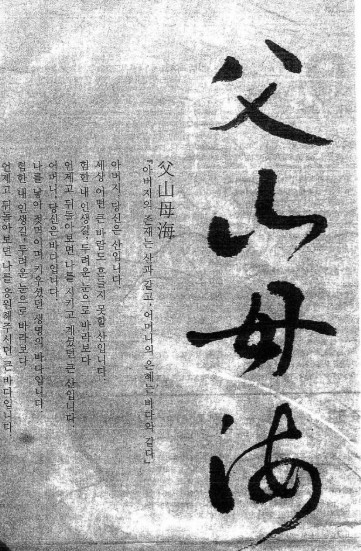 父山母海
父山母海
『아버지의 존재는 산과 같고, 어머니의 은혜는 바다와 같다』
아버지, 당신은 산입니다.
세상 어떤 큰 바람도 흔들지 못할 산입니다.
험한 내 인생길, 두려운 눈으로 바라보다
언제고 뒤돌아 보면 나를 지키고 계셨던 큰 산입니다
어머니, 당신은 바다입니다.
나를 낳아 젖먹이며 키우셨던 생명의 바다입니다
험한 내 인생길, 두려운 눈으로 바라보다
언제고 뒤돌아보면 나를 응원해주시던 큰 바다입니다